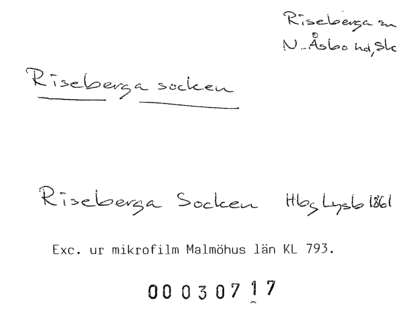 Riseberga sn
N. Åsbo hd, Sk
Riseberga socken
Riseberga Socken Hbg Lysb 1861
Exc. ur mikrofilm Malmöhus län KL 793.
00030717